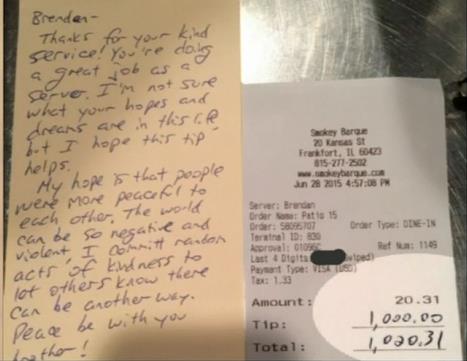 Brendan-
Thanks for your kind
service! You're doing
a great job as a
server. I'm not sure
what your hopes and
dreams are in this life,
but I hope this tip
helps.
My hope is that people
were more peaceful to
each other. The world
can be so negative and
violent, I committ random
acts of kindness to
lot others know there
can be another way.
Peace be with you
brother!
Smokey Barque
20 Kansas St
Frankfort, IL 60423
815-277-2502
www.smokeybarque.com
Jun 28 2015 4:57:08 PM
Server: Brendan
Order Name: Patio 15
Order: 58095707 Order Type: DINE-IN
Terminal ID: 830
Approval: 01096C Ref Num: 1149
Last 4 Digits
Payment Type: VISA (USD)
Tax: 1.33
Amount: 20.31
Tip: 1,000.00
Total: 1,020.31